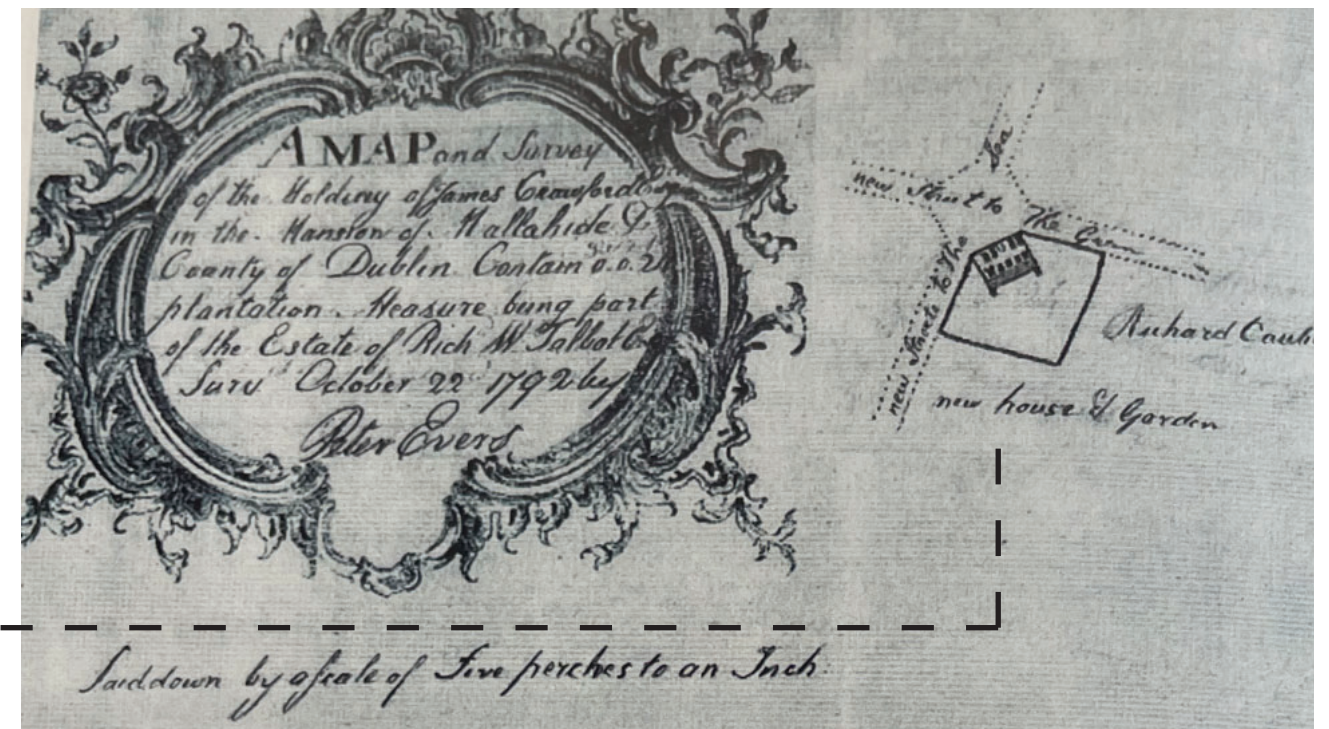 A MAP and Survey
of the Holding of James Crawford
in the Mansion of Mallahide &
County of Dublin Contain 0..0..
plantation Measure being part
of the Estate of Rich W. Talbot
Surv October 22 1792 by
Peter Evers
Sea
new Street to The Green
new Street to The
Richard Cauh
new house & Garden
Laid down by a Scale of Five perches to an Inch